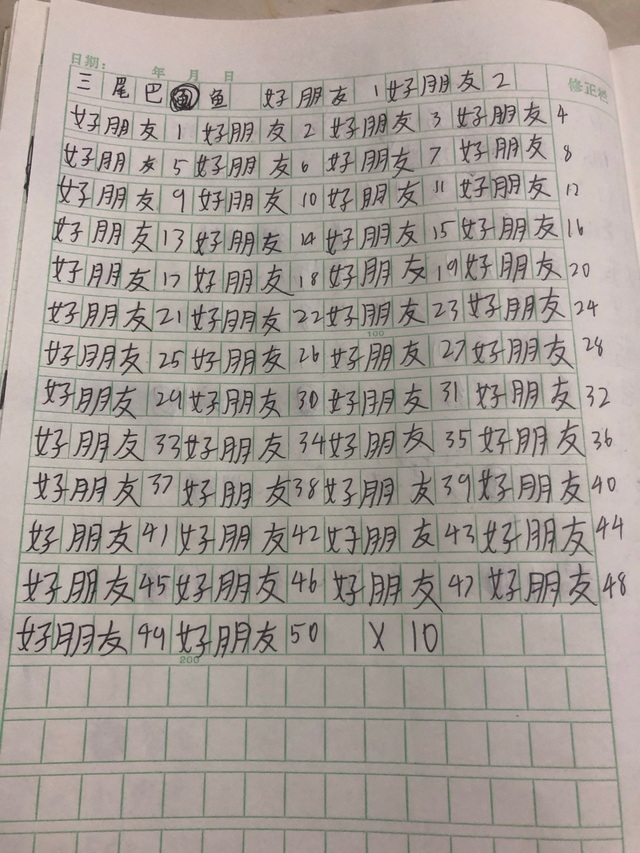 日期： 年 月 日
修正栏
三尾巴鱼 好朋友 1 好朋友 2
好朋友 1 好朋友 2 好朋友 3 好朋友 4
好朋友 5 好朋友 6 好朋友 7 好朋友 8
好朋友 9 好朋友 10 好朋友 11 好朋友 12
好朋友 13 好朋友 14 好朋友 15 好朋友 16
好朋友 17 好朋友 18 好朋友 19 好朋友 20
好朋友 21 好朋友 22 好朋友 23 好朋友 24
100
好朋友 25 好朋友 26 好朋友 27 好朋友 28
好朋友 29 好朋友 30 好朋友 31 好朋友 32
好朋友 33 好朋友 34 好朋友 35 好朋友 36
好朋友 37 好朋友 38 好朋友 39 好朋友 40
好朋友 41 好朋友 42 好朋友 43 好朋友 44
好朋友 45 好朋友 46 好朋友 47 好朋友 48
好朋友 49 好朋友 50 X 10
200